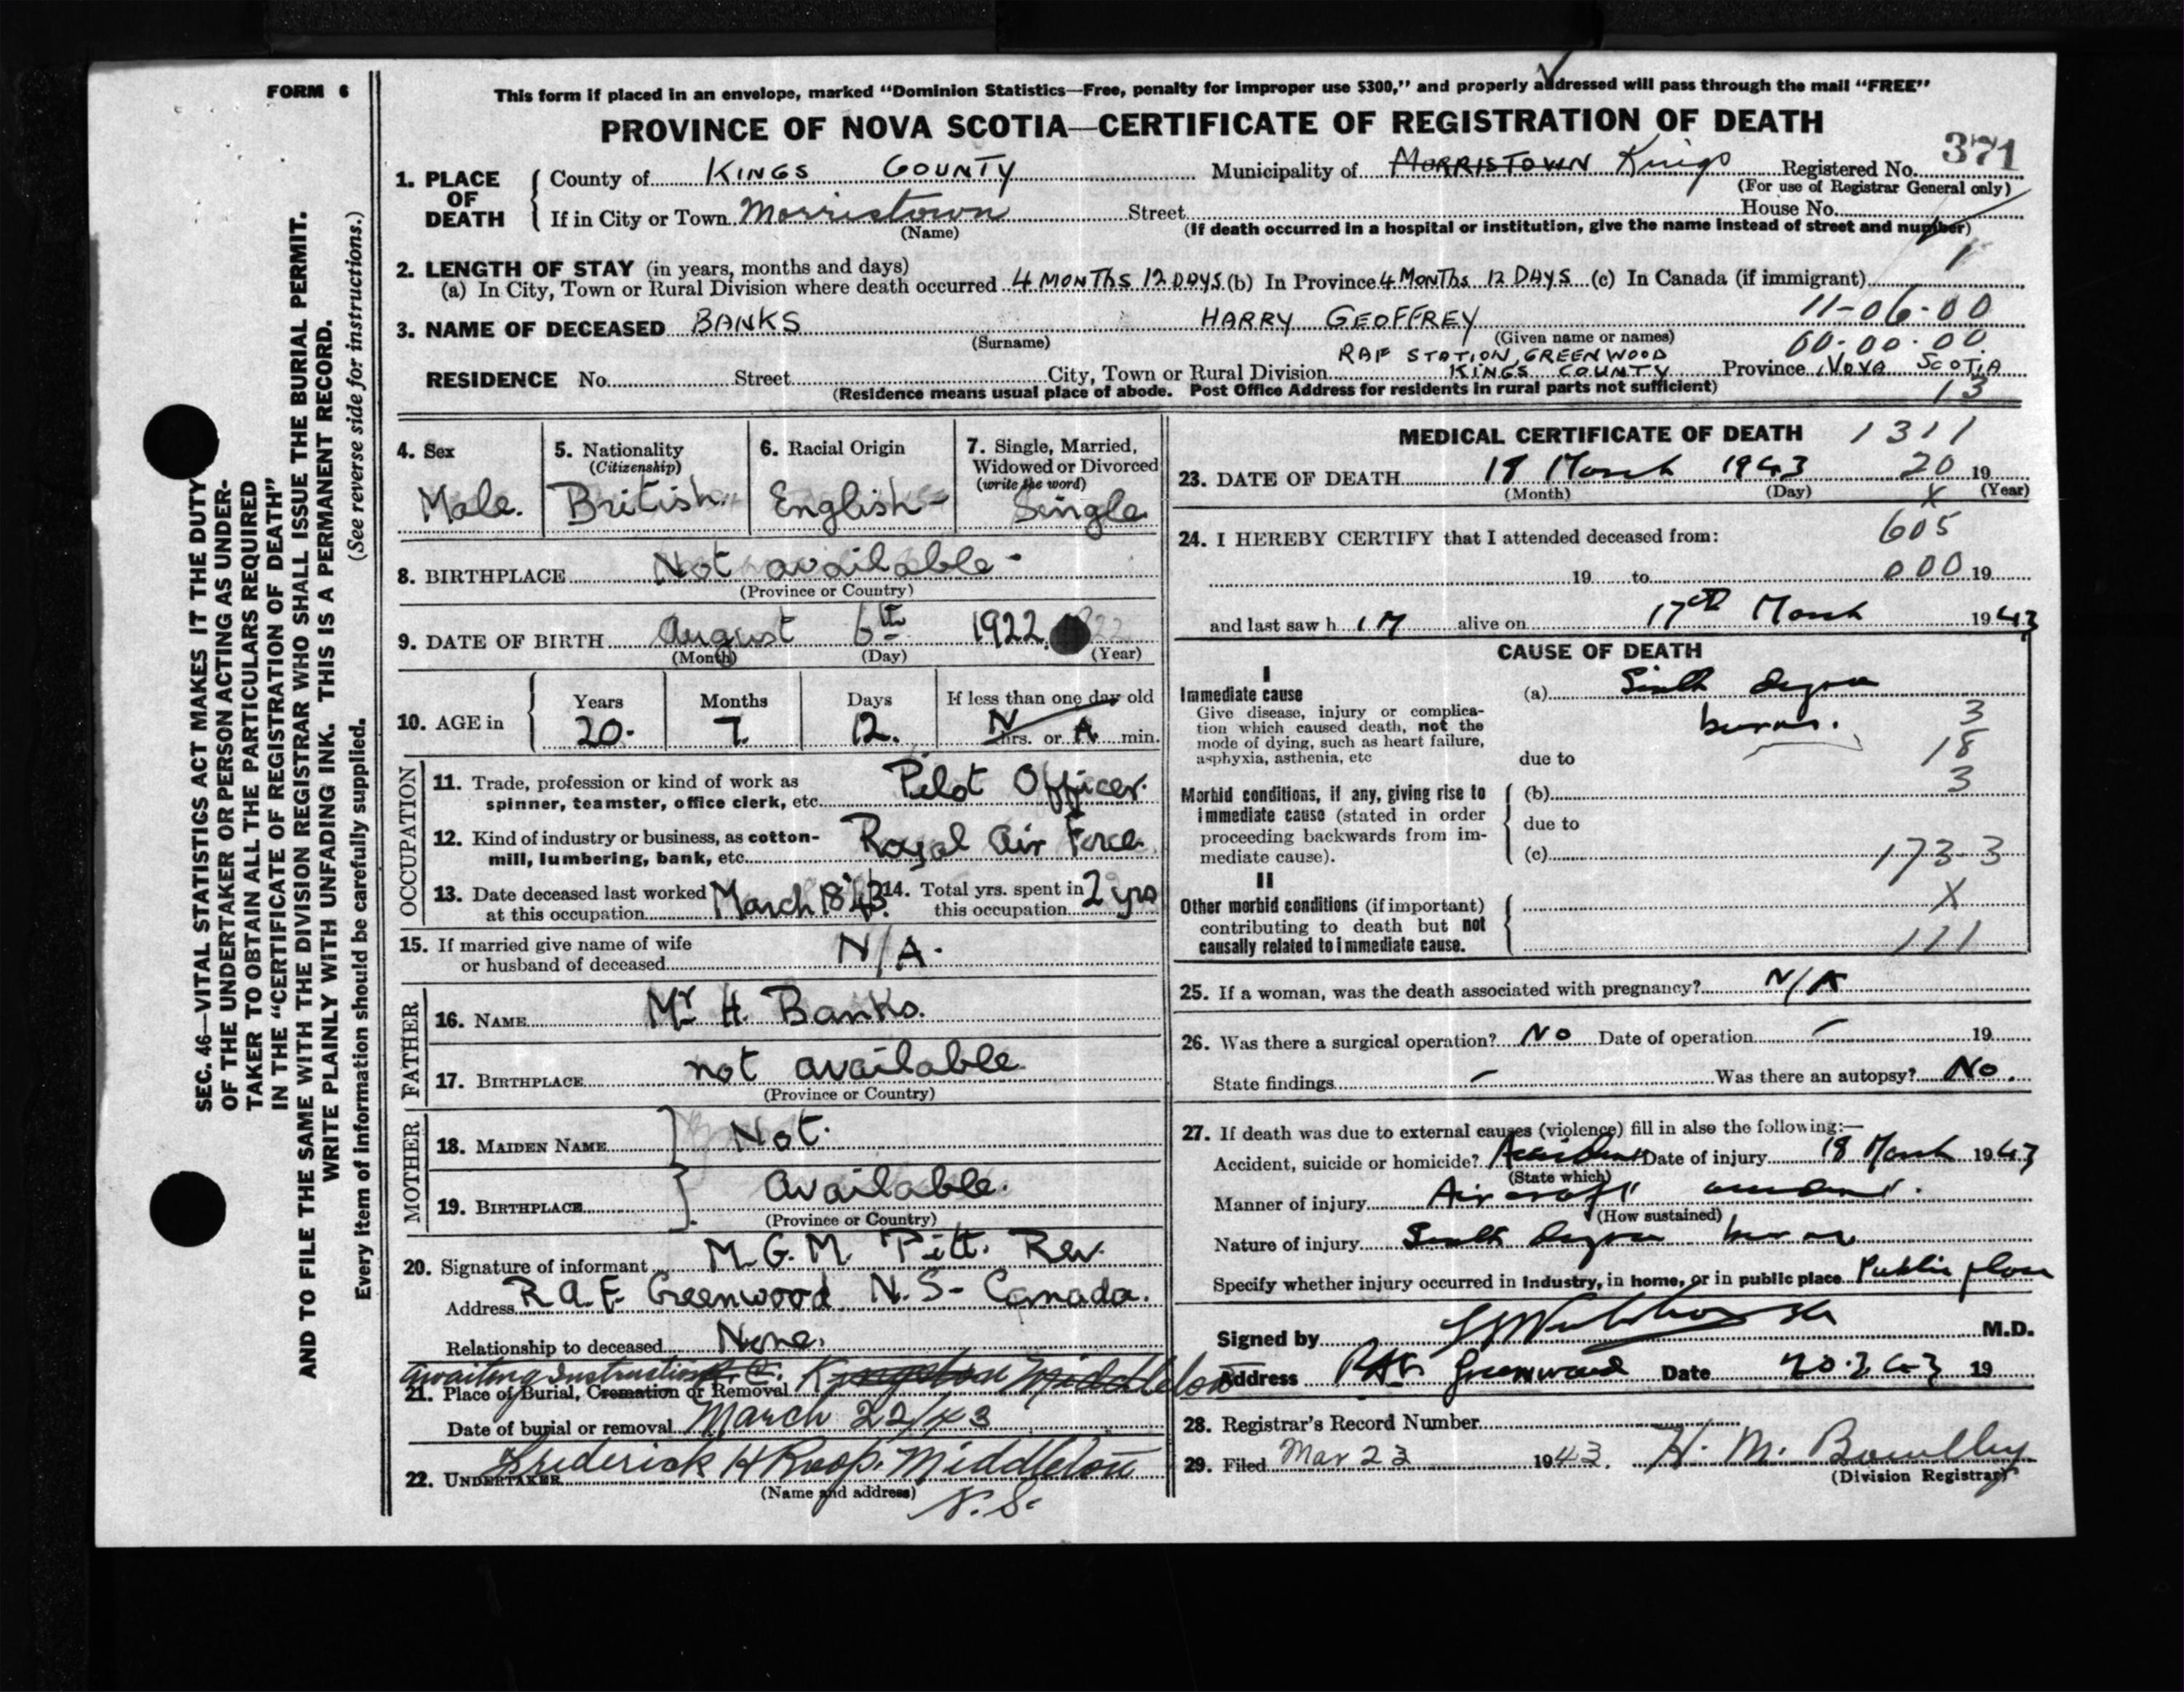 FORM 6
This form if placed in an envelope, marked "Dominion Statistics—Free, penalty for improper use $300," and properly addressed will pass through the mail "FREE"
PROVINCE OF NOVA SCOTIA—CERTIFICATE OF REGISTRATION OF DEATH
371
1. PLACE OF DEATH
County of KINGS COUNTY Municipality of MORRISTOWN Kings Registered No.
(For use of Registrar General only)
If in City or Town Morristown Street House No.
(Name) (If death occurred in a hospital or institution, give the name instead of street and number)
1
2. LENGTH OF STAY (in years, months and days)
(a) In City, Town or Rural Division where death occurred 4 MONTHS 12 DAYS (b) In Province 4 MONTHS 12 DAYS (c) In Canada (if immigrant)
11-06-00
3. NAME OF DECEASED BANKS HARRY GEOFFREY
(Surname) (Given name or names)
00-00-00
RAF STATION, GREENWOOD
RESIDENCE No. Street City, Town or Rural Division KINGS COUNTY Province NOVA SCOTIA
(Residence means usual place of abode. Post Office Address for residents in rural parts not sufficient)
13
SEC. 46—VITAL STATISTICS ACT MAKES IT THE DUTY
OF THE UNDERTAKER OR PERSON ACTING AS UNDER-
TAKER TO OBTAIN ALL THE PARTICULARS REQUIRED
IN THE "CERTIFICATE OF REGISTRATION OF DEATH"
AND TO FILE THE SAME WITH THE DIVISION REGISTRAR WHO SHALL ISSUE THE BURIAL PERMIT.
WRITE PLAINLY WITH UNFADING INK. THIS IS A PERMANENT RECORD.
Every item of information should be carefully supplied. (See reverse side for instructions.)
4. Sex
Male.
5. Nationality
(Citizenship)
British
6. Racial Origin
English
7. Single, Married,
Widowed or Divorced
(write the word)
Single
8. BIRTHPLACE Not available
(Province or Country)
9. DATE OF BIRTH August 6th 1922
(Month) (Day) (Year)
10. AGE in
Years Months Days If less than one day old
20. 7. 12. N hrs. or A min.
OCCUPATION
11. Trade, profession or kind of work as
spinner, teamster, office clerk, etc. Pilot Officer.
12. Kind of industry or business, as cotton-
mill, lumbering, bank, etc. Royal Air Force
13. Date deceased last worked
at this occupation March 18 '43
14. Total yrs. spent in
this occupation 2 yrs
15. If married give name of wife
or husband of deceased N/A.
FATHER
16. NAME Mr H. Banks.
17. BIRTHPLACE not available
(Province or Country)
MOTHER
18. MAIDEN NAME Not.
19. BIRTHPLACE available.
(Province or Country)
20. Signature of informant M.G.M. Pitt. Rev.
Address R.A.F. Greenwood N.S. Canada.
Relationship to deceased None.
awaiting Instructions
21. Place of Burial, Cremation or Removal Kingston Middleton
Date of burial or removal March 22/43
22. UNDERTAKER Frederick H Roop. Middleton
(Name and address) N.S.
MEDICAL CERTIFICATE OF DEATH
1311
23. DATE OF DEATH 18 March 1943 20 19
(Month) (Day) X (Year)
24. I HEREBY CERTIFY that I attended deceased from:
605
19 to 000 19
and last saw h im alive on 17th March 1943
CAUSE OF DEATH
I
Immediate cause
Give disease, injury or complica-
tion which caused death, not the
mode of dying, such as heart failure,
asphyxia, asthenia, etc
(a) Sixth degree
burns.
due to
3
18
3
Morbid conditions, if any, giving rise to
immediate cause (stated in order
proceeding backwards from im-
mediate cause).
(b)
due to
(c) 173-3
II
Other morbid conditions (if important)
contributing to death but not
causally related to immediate cause.
X
111
25. If a woman, was the death associated with pregnancy? N/A
26. Was there a surgical operation? No Date of operation – 19
State findings – Was there an autopsy? No.
27. If death was due to external causes (violence) fill in also the following:—
Accident, suicide or homicide? Accident Date of injury 18 March 1943
(State which)
Manner of injury Aircraft accident.
(How sustained)
Nature of injury Sixth degree burns
Specify whether injury occurred in industry, in home, or in public place Public place
Signed by M.D.
Address RAF Greenwood Date 20.3.43 19
28. Registrar's Record Number
29. Filed Mar 23 1943. H. M.
(Division Registrar)